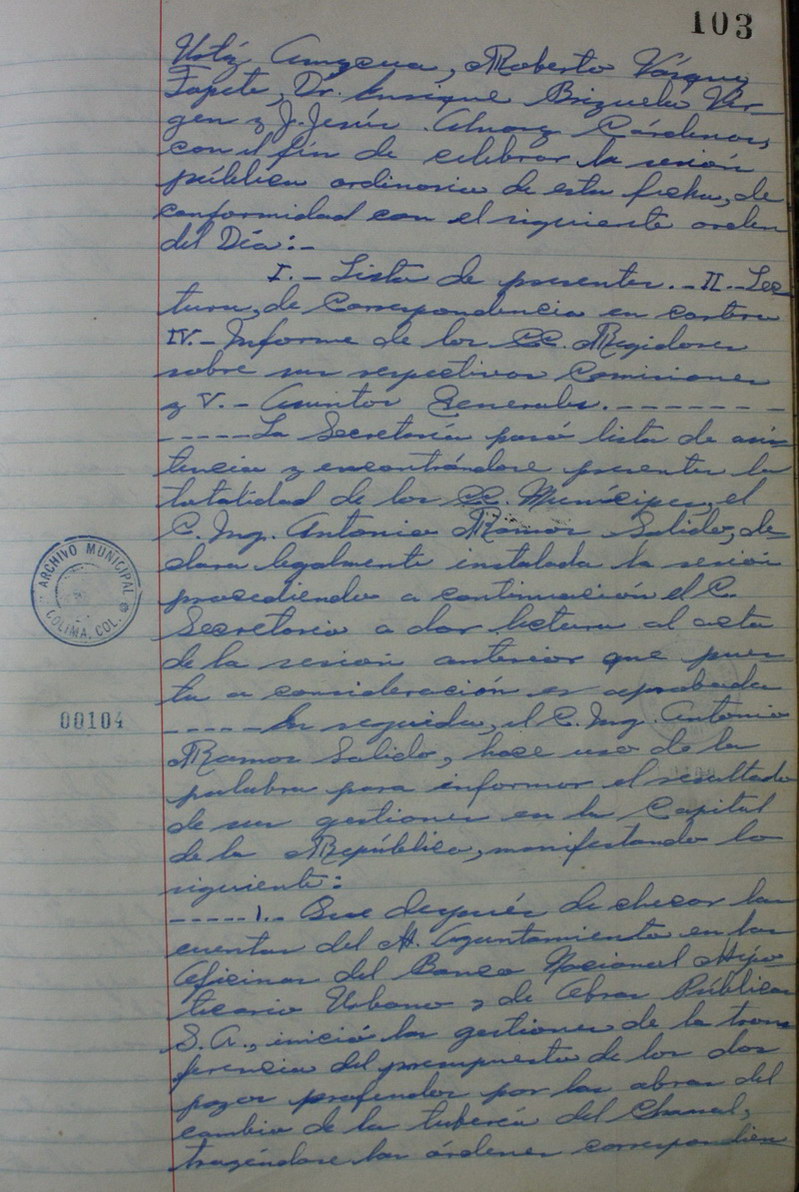 103
Amezcua, Roberto Vázquez
Tapete, Dr. Enrique Brizuela Vir-
gen y J. Jesús Alvarez Cárdenas,
con el fin de celebrar la sesión
pública ordinaria de esta fecha, de
conformidad con el siguiente orden
del Día:-
I.- Lista de presentes.- II.- Lec-
tura, de Correspondencia en cartera
IV.- Informe de los CC. Regidores
sobre sus respectivas Comisiones
y V.- Asuntos Generales.- - - - - - -
- - - - - La Secretaría pasó lista de asis
tencia y encontrándose presentes la
totalidad de los CC. Munícipes, el
C. Ing. Antonio Ramos Salido, de
clara legalmente instalada la sesión
procediendo a continuación el C.
Secretario a dar lectura al acta
de la sesión anterior que pues
ta a consideración es aprobada
- - - - - En seguida, el C. Ing. Antonio
Ramos Salido, hace uso de la
palabra para informar el resultado
de sus gestiones en la Capital
de la República, manifestando lo
siguiente:
- - - - - 1.- Que después de checar las
cuentas del H. Ayuntamiento en las
Oficinas del Banco Nacional Hipo-
tecario Urbano y de Obras Públicas
S.A., inició las gestiones de la trans
ferencia del presupuesto de los dos
pozos profundos por las obras del
cambio de la tubería del Chanal,
trayéndose las órdenes correspondien
ARCHIVO MUNICIPAL
COLIMA, COL.
00104